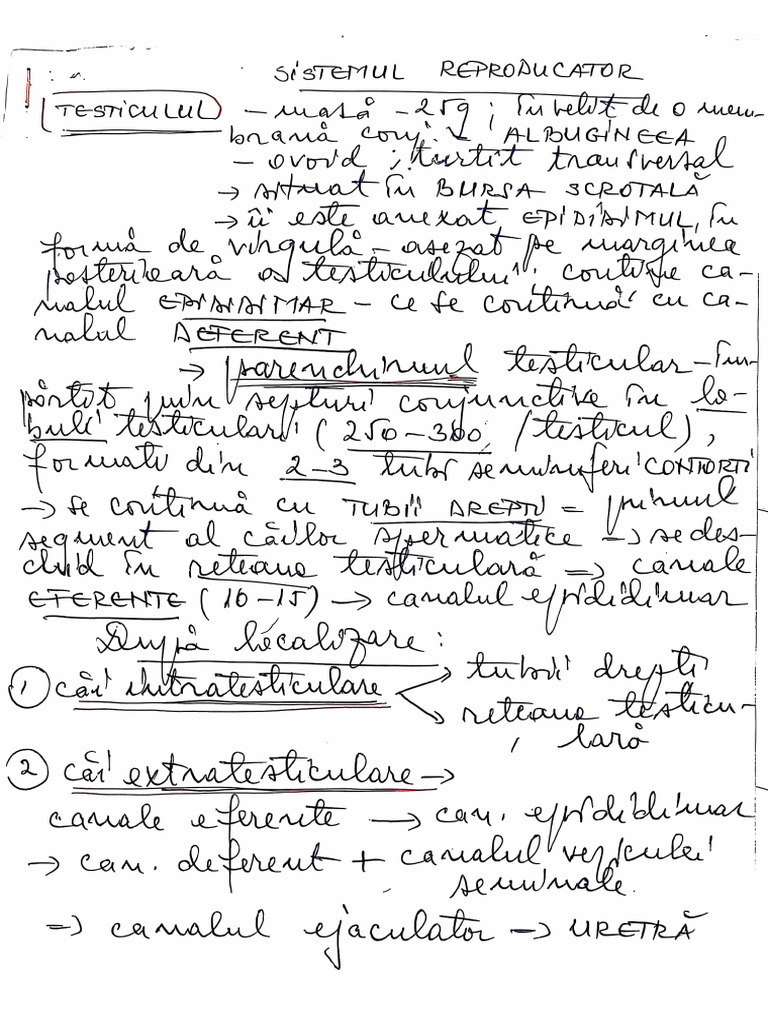 SISTEMUL REPRODUCATOR
TESTICULUL - masă - 25g ; învelit de o mem-
brană conj. ALBUGINEEA
- ovoid ; turtit transversal
→ situat în BURSA SCROTALĂ
→ îi este anexat EPIDIDIMUL, în
formă de virgulă - așezat pe marginea
posterioară a testiculului ; conține ca-
nalul EPIDIDIMAR - ce se continuă cu ca-
nalul DEFERENT
→ parenchimul testicular - îm-
părțit prin septuri conjunctive în lo-
buli testiculari (250-300/testicul),
formați din 2-3 tubi seminiferi CONTORTI
→ se continuă cu TUBII DREPȚI = primul
segment al căilor spermatice → se des-
chid în rețeaua testiculară ⇒ canale
EFERENTE (10-15) → canalul epididimar
După localizare:
① căi intratesticulare → tubii drepți
→ rețeaua testicu-
lară
② căi extratesticulare →
canale eferente → can. epididimar
→ can. deferent + canalul veziculei
seminale.
⇒ canalul ejaculator → URETRĂ